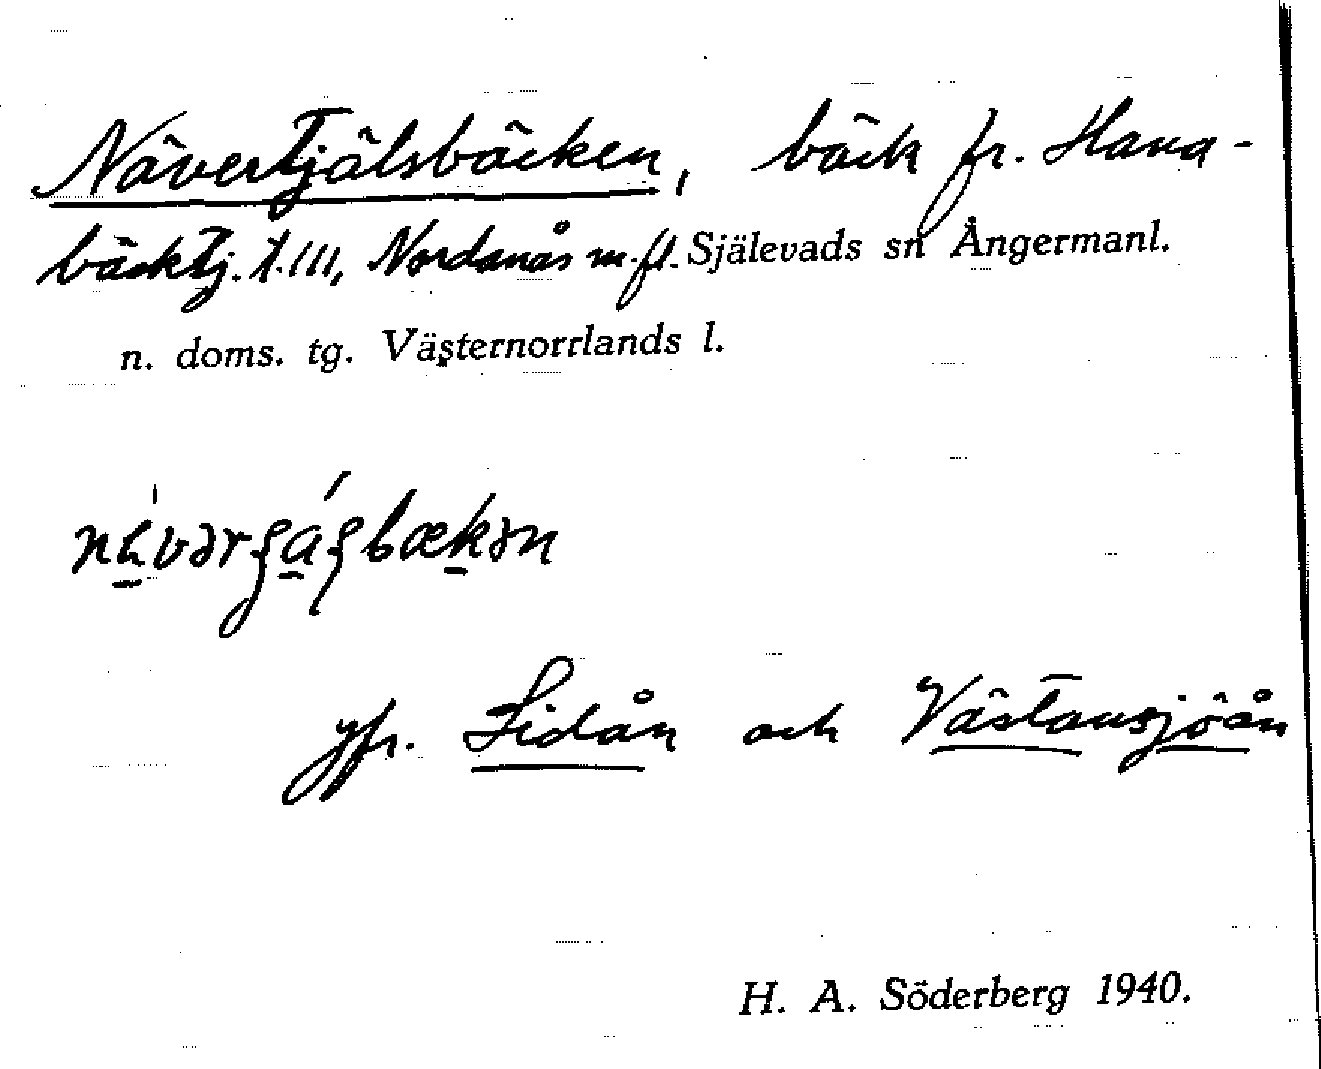 Nävertjälsbäcken, bäck fr. Hana-
bäcktj. t. Ill, Nordanås m. fl. Själevads sn Ångermanl.
n. doms. tg. Västernorrlands l.
jfr. Lidån och Västansjöån
H. A. Söderberg 1940.